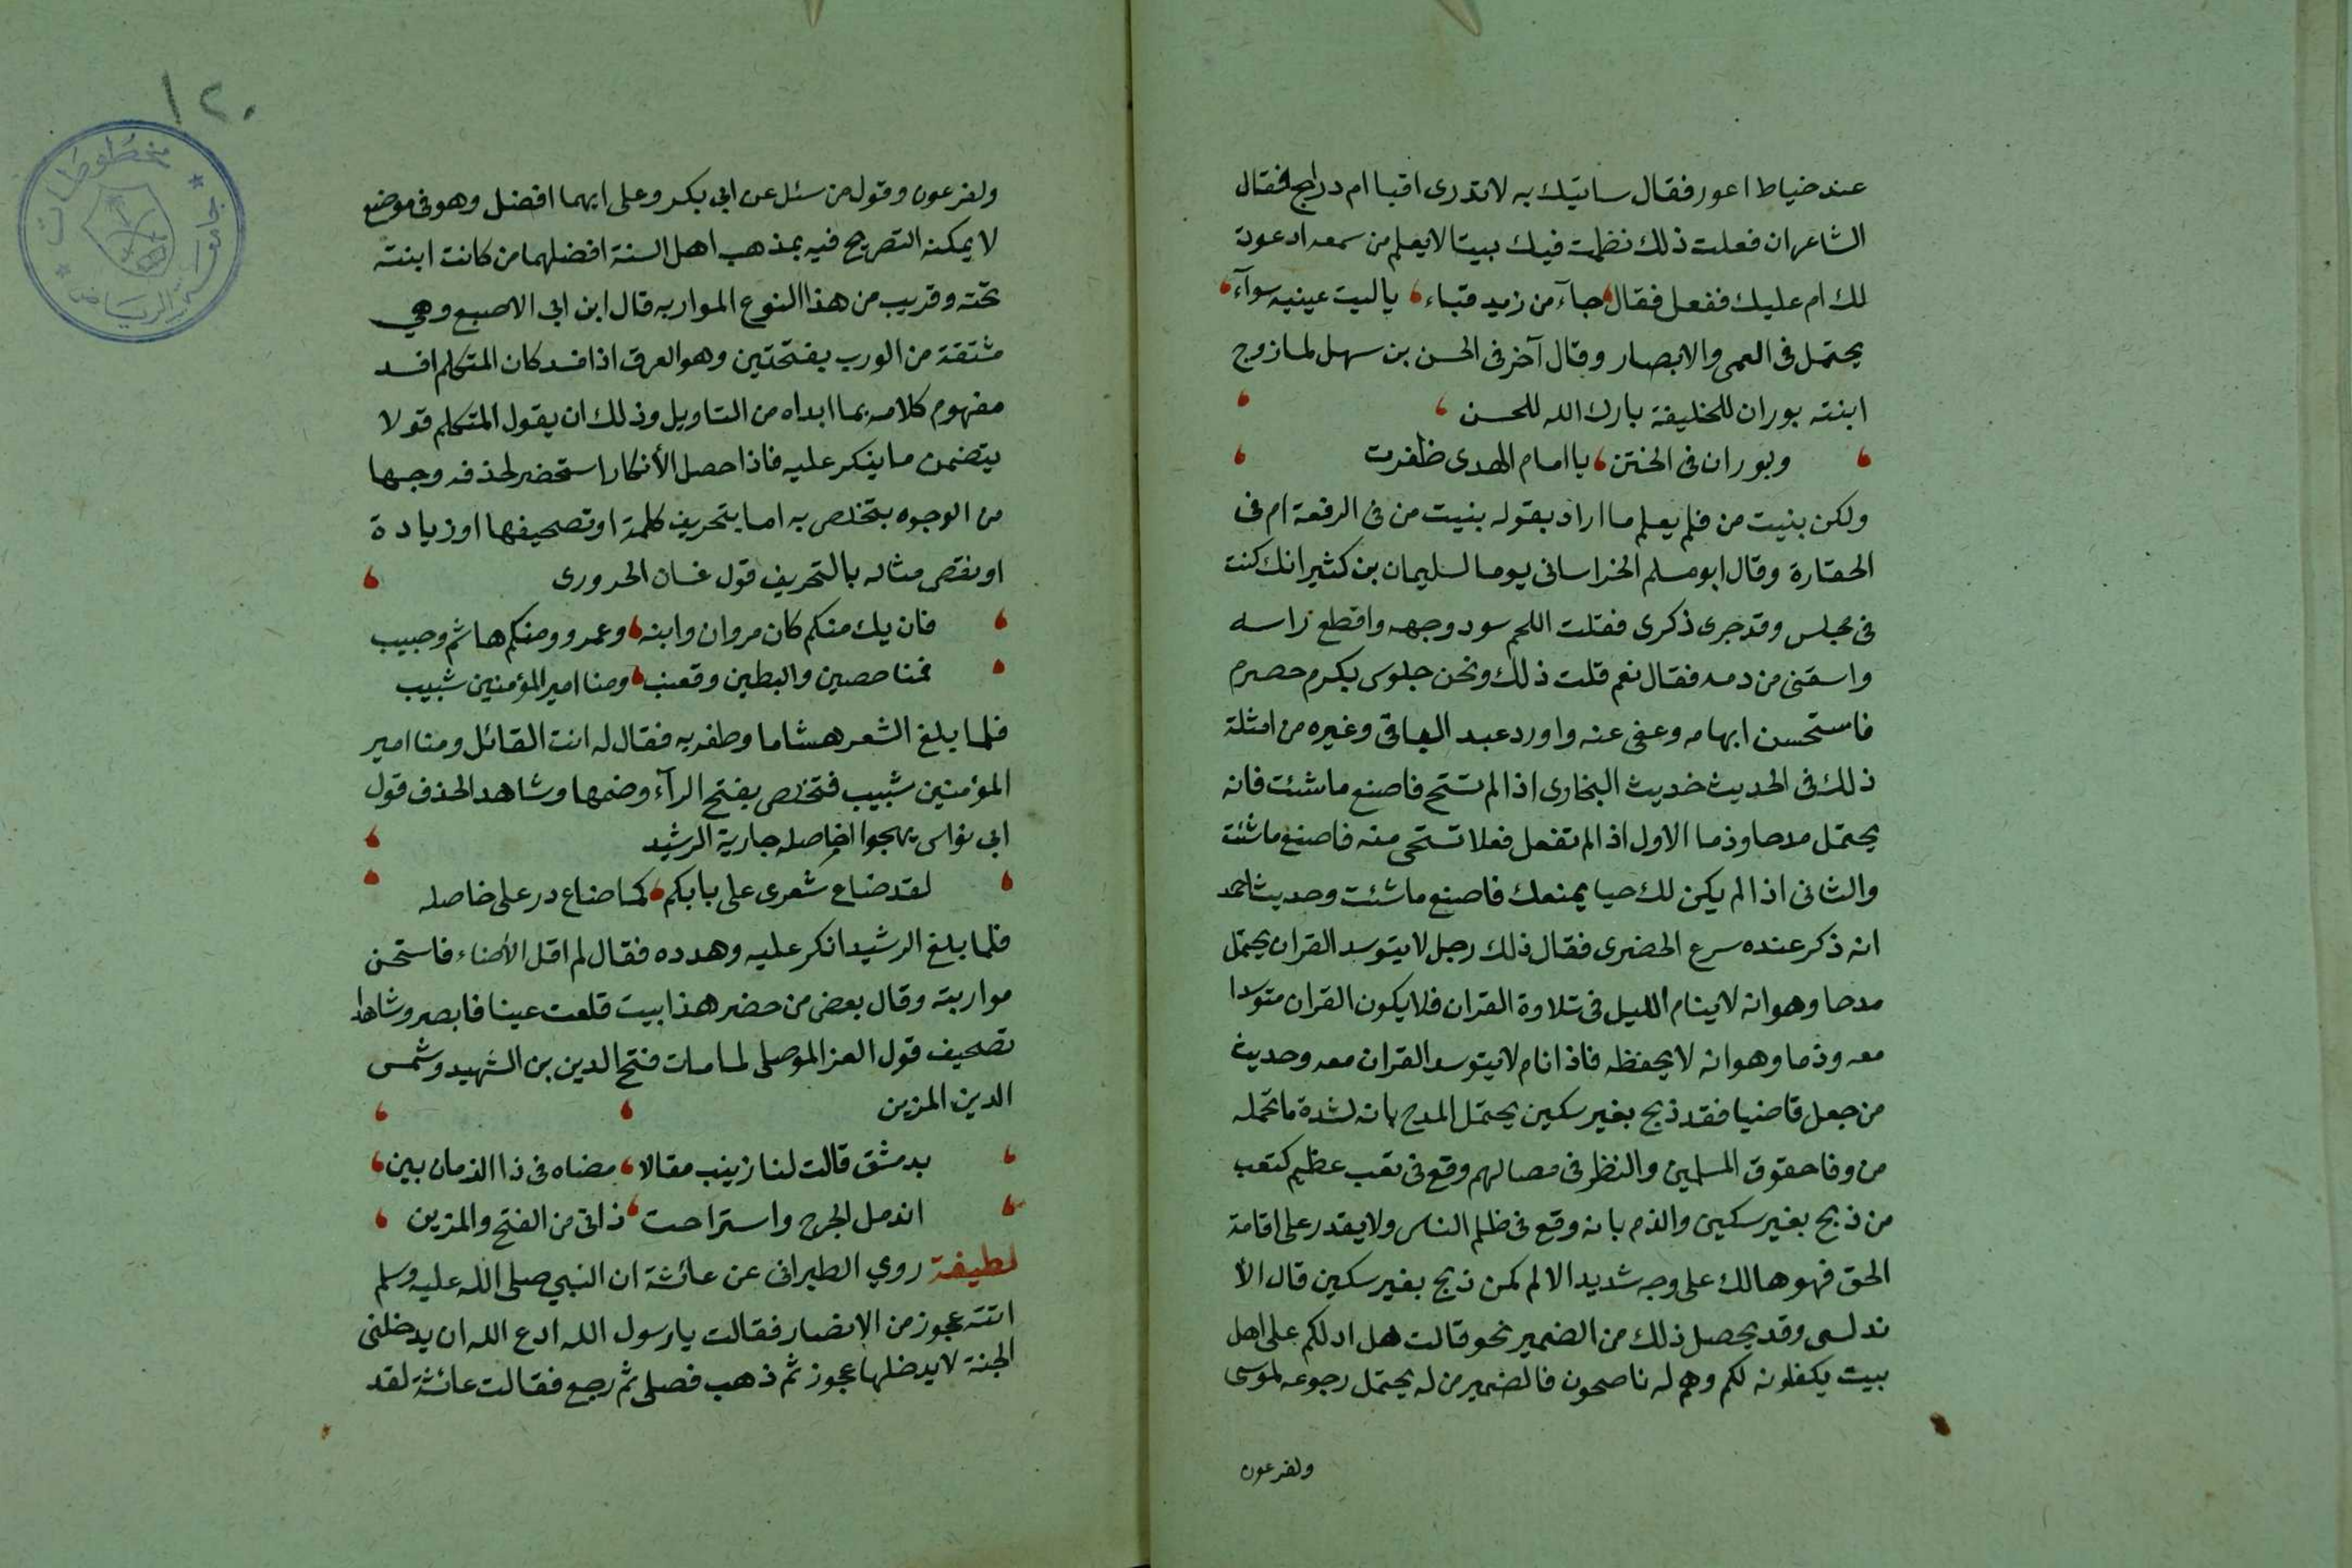 عند خياط اعور فقال ساتيك به لا تدرى اقبا ام دراج فقال
الشاعر ان فعلت ذلك نظمت فيك بيتا لا يعلم من سمعه ادعوت
لك ام عليك ففعل فقال جآء من زيد قباء ياليت عينيه سوآء
يحتمل فى العمى والابصار وقال آخر فى الحسن بن سهل لما زوج
ابنته بوران للخليفة بارك الله للحسن
وبوران فى الختن يا امام الهدى ظفرت
ولكن بنيت من فلم يعلم ما اراد بقوله بنيت من فى الرفعة ام فى
الحقارة وقال ابو مسلم الخراسانى يوما لسليمان بن كثير انك كنت
فى مجلس وقد جرى ذكرى فقلت اللهم سود وجهه واقطع راسه
واسقنى من دمه فقال نعم قلت ذلك ونحن جلوس بكرم حصرم
فاستحسن ابهامه وعفى عنه واورد عبد الباقى وغيره من امثلة
ذلك فى الحديث حديث البخارى اذا لم تستح فاصنع ماشئت فانه
يحتمل مدحا وذما الاول اذا لم تفعل فعلا تستحى منه فاصنع ماشئت
والثانى اذا لم يكن لك حيا يمنعك فاصنع ماشئت وحديث احمد
انه ذكر عنده سرع الحضرى فقال ذلك رجل لا يتوسد القران يحتمل
مدحا وهو انه لا ينام الليل فى تلاوة القران فلا يكون القران متوسدا
معه وذما وهو انه لا يحفظه فاذا نام لا يتوسد القران معه وحديث
من جعل قاضيا فقد ذبح بغير سكين يحتمل المدح بانه لشدة ما تحمله
من وفا حقوق المسلمين والنظر فى مصالهم وقع فى تعب عظيم كتعب
من ذبح بغير سكين والذم بانه وقع فى ظلم الناس ولا يقدر على اقامة
الحق فهو هالك على وجه شديد الالم كمن ذبح بغير سكين قال الأ
ندلسى وقد يحصل ذلك من الضمير نحو قالت هل ادلكم على اهل
بيت يكفلونه لكم وهم له ناصحون فالضمير من له يحتمل رجوعه لموسى
ولفرعون
١٢٠
مخطوطات
جامعة الرياض
ولفرعون وقول من سئل عن ابي بكر وعلى ايهما افضل وهو فى موضع
لا يمكنه التصريح فيه بمذهب اهل السنة افضلهما من كانت ابنته
تحته وقريب من هذا النوع المواربه قال ابن ابى الاصبع وهي
مشتقة من الورب بفتحتين وهو العرق اذا فسد كان المتكلم افسد
مفهوم كلامه بما ابداه من التاويل وذلك ان يقول المتكلم قولا
يتضمن ما ينكر عليه فاذا حصل الأنكار استحضر لحذفه وجها
من الوجوه يتخلص به اما بتحريف كلمة او تصحيفها او زيادة
او نقص مثاله بالتحريف قول غسان الحرورى
فان يك منكم كان مروان وابنه وعمرو ومنكم هاشم وحبيب
فمنا حصين والبطين وقعنب ومنا امير المؤمنين شبيب
فلما بلغ الشعر هشاما وظفر به فقال له انت القائل ومنا امير
المؤمنين شبيب فتخلص بفتح الرآء وضمها وشاهد الحذف قول
ابى نواس يهجوا خاصله جارية الرشيد
لقد ضاع شعرى على بابكم كما ضاع در على خاصله
فلما بلغ الرشيد انكر عليه وهدده فقال لم اقل الأضاء فاستحسن
مواربته وقال بعض من حضر هذا بيت قلعت عينا فابصر وشاهد
تصحيف قول العز الموصلى لما مات فتح الدين بن الشهيد وشمس
الدين المزين
بدمشق قالت لنا زينب مقالا معناه فى ذا الزمان بين
اندمل الجرح واستراحت ذاتى من الفتح والمزين
لطيفة روي الطبرانى عن عائشة ان النبي صلى الله عليه وسلم
اتته عجوز من الانصار فقالت يارسول الله ادع الله ان يدخلنى
الجنة لا يدخلها عجوز ثم ذهب فصلى ثم رجع فقالت عائشة لقد